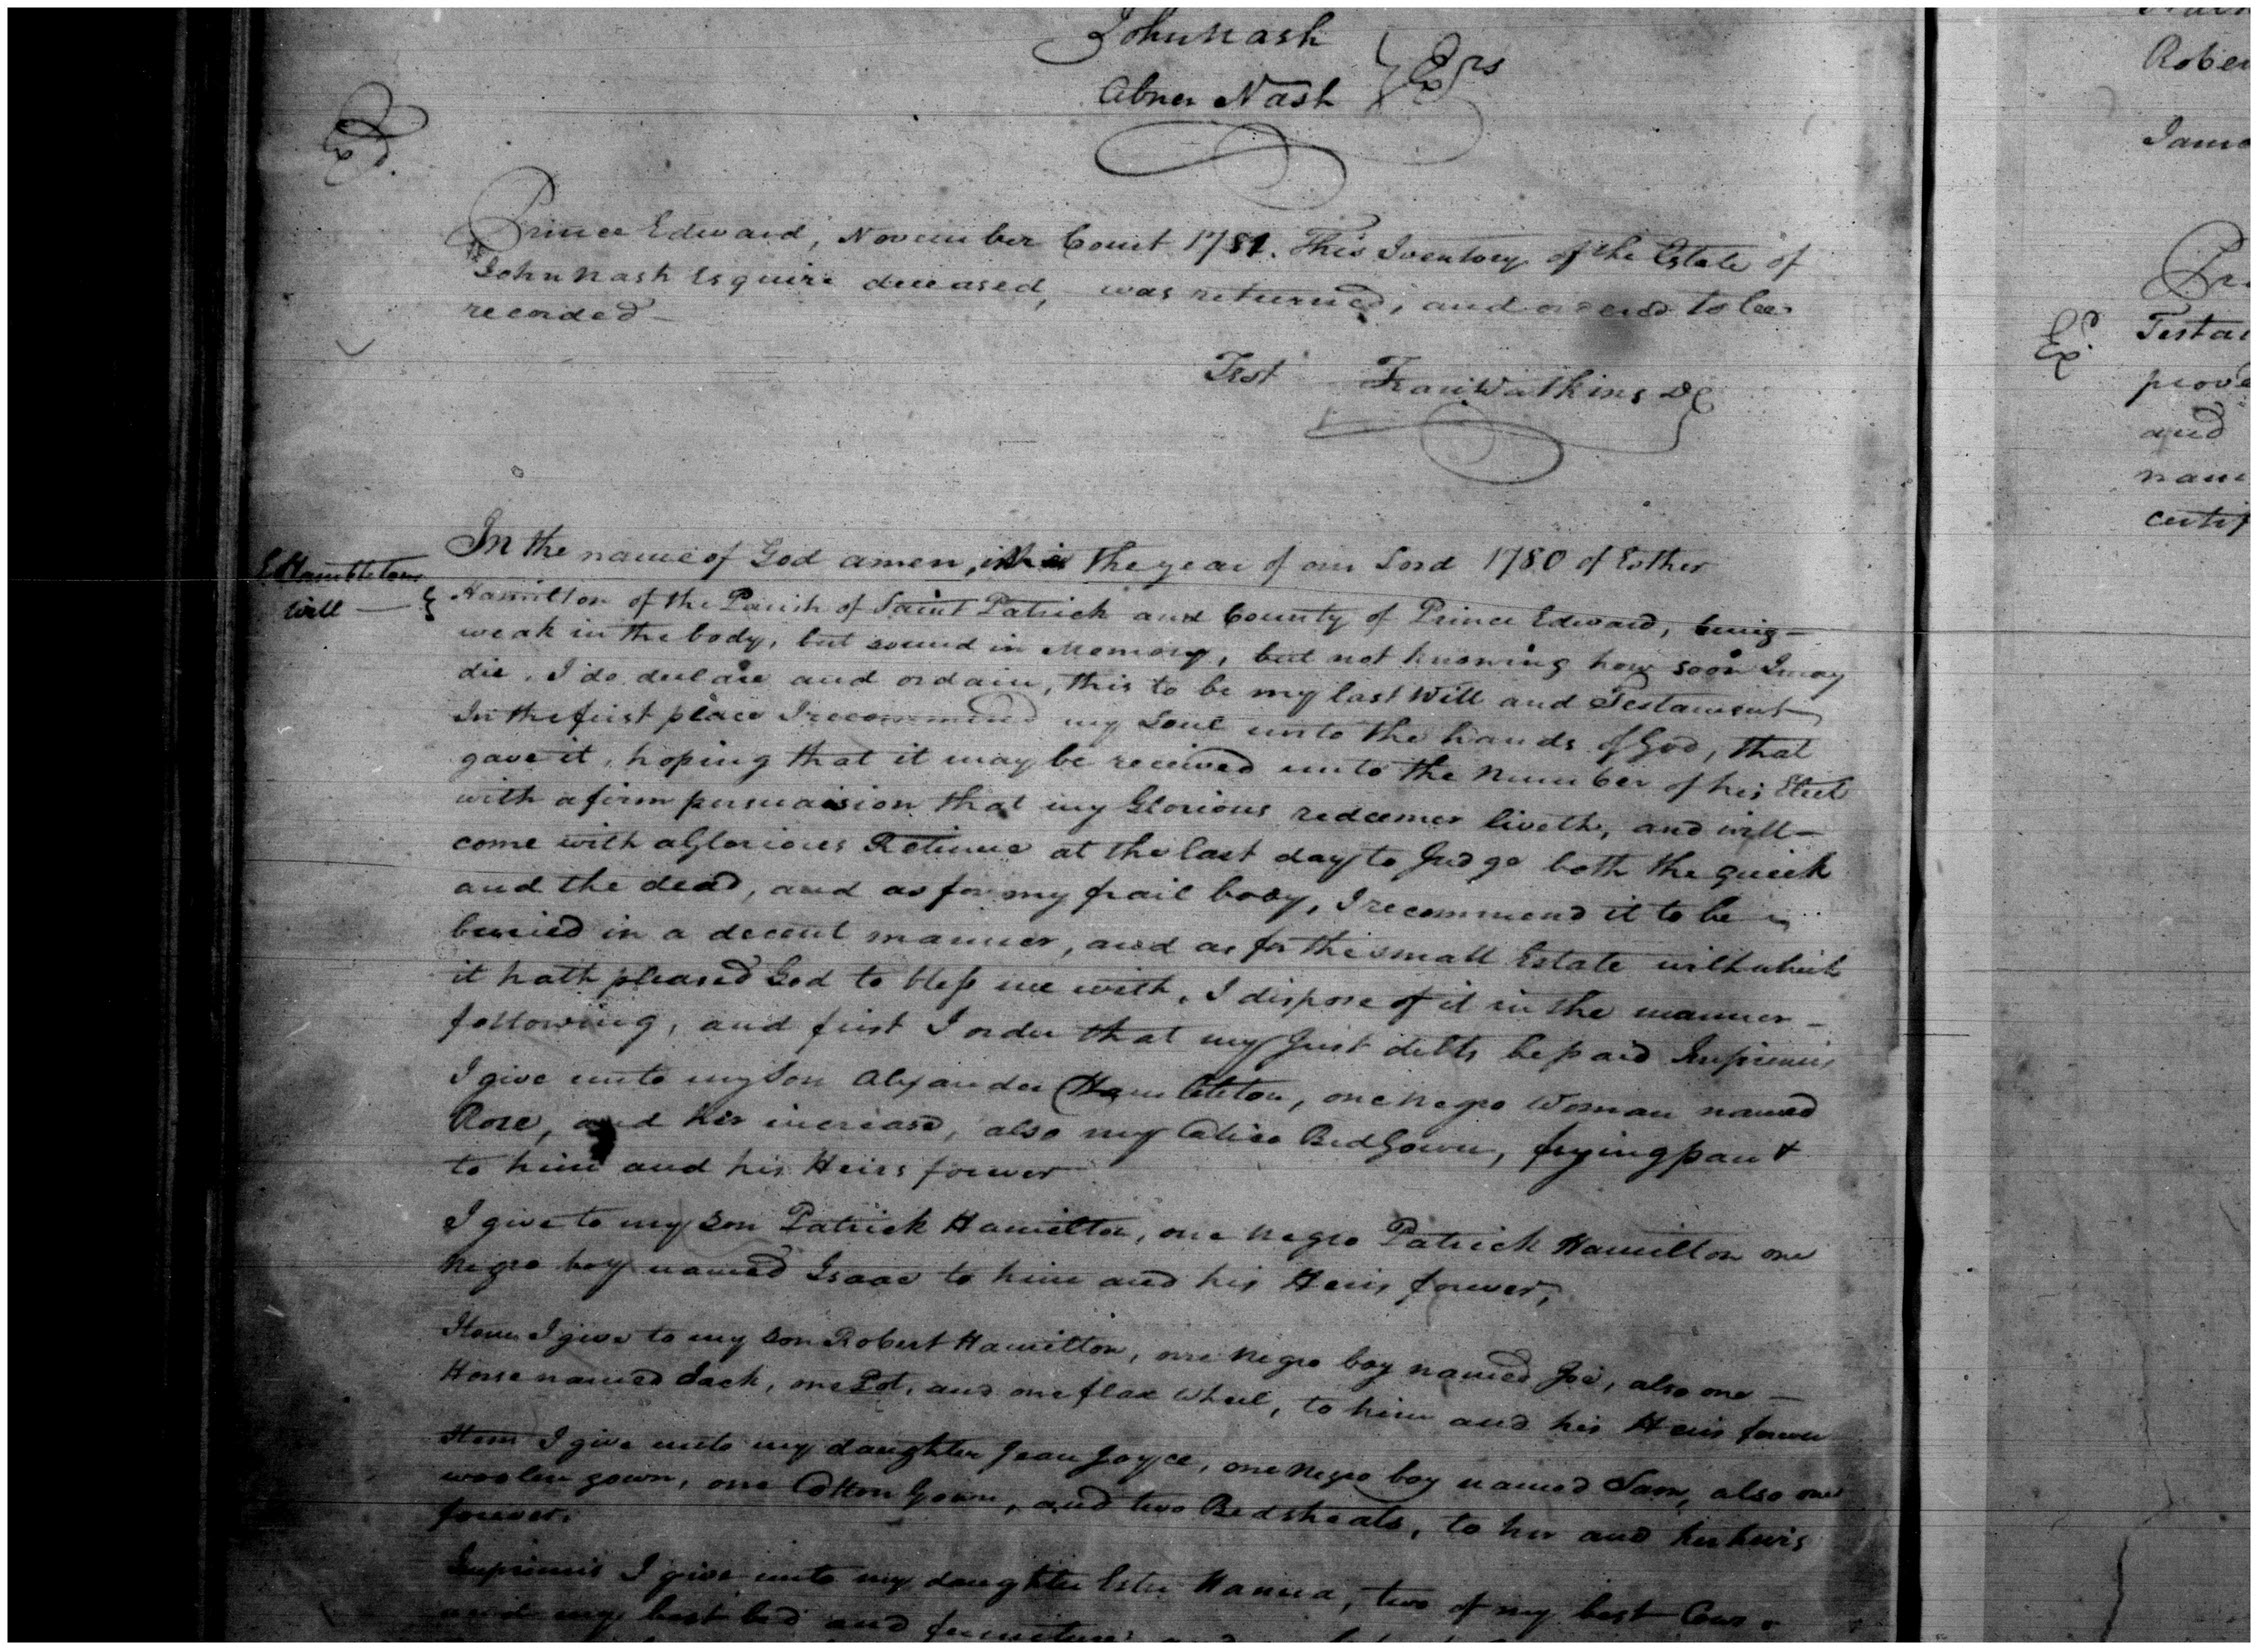 John Nash
Abner Nash } Exrs
Exd.
Prince Edward, November Court 1781. This Inventory of the Estate of
John Nash Esquire deceased, was returned, and ordered to be
recorded
Test Fran Watkins DC
E Hambleton
Will
In the name of God amen, the year of our Lord 1780 of Esther
Hamilton of the Parish of Saint Patrick and County of Prince Edward, being
weak in the body, but sound in Memory, but not knowing how soon I may
die, I do declare and ordain, this to be my last Will and Testament
In the first place I recommend my Soul unto the hands of God, that
gave it, hoping that it may be received unto the number of his Elect
with a firm persuaision that my Glorious redeemer liveth, and will
come with a Glorious Retinue at the last day to Judge both the quick
and the dead, and as for my frail body, I recommend it to be
buried in a decent manner, and as for the small Estate which
it hath pleased God to bless me with, I dispose of it in the manner
following, and first I order that my Just debts be paid Imprimis
I give unto my Son Alexander Hambleton, one negro Woman named
Rose, and her increase, also my Calico Bed Gown, frying pan &
to him and his Heirs forever
I give to my Son Patrick Hamilton, one negro Patrick Hamilton one
negro boy named Isaac to him and his Heirs forever,
Item I give to my Son Robert Hamilton, one negro boy named Joe, also one
Horse named Jack, one Pot, and one flax Wheel, to him and his Heirs forever
Item I give unto my daughter Jean Joyce, one negro boy named Sam, also one
woolen gown, one Cotton Gown, and two Bedsheats, to her and her heirs
forever.
Imprimis I give unto my daughter Ester Hanna, two of my best Cows
and my best bed and furniture
Rober
Jame
Ex.d
Testa
prove
and
name
certif